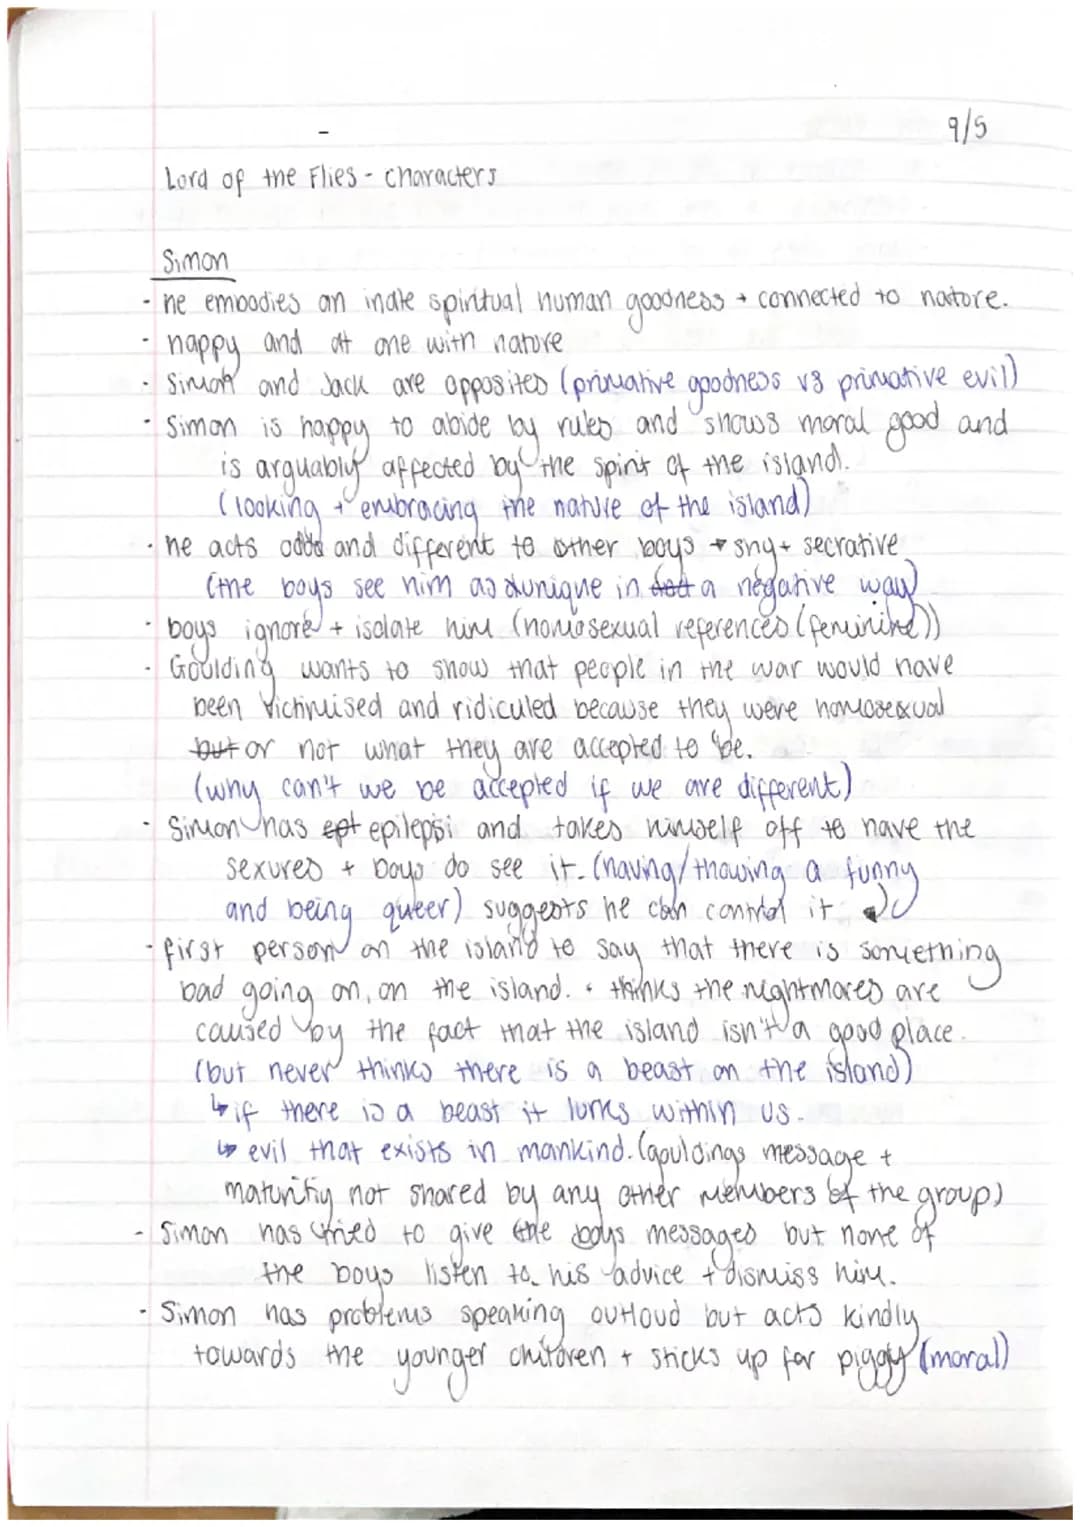 9/5
Lord of the Flies - characters
Simon
- he embodies an inate spiritual human goodness + connected to nature.
- happy and at one with nature
- Simon and Jack are opposites (primative goodness vs primative evil)
- Simon is happy to abide by rules and shows moral good and
is arguably affected by the spirit of the island.
(looking + embracing the nature of the island)
- he acts odd and different to other boys → shy + secrative
(the boys see him as unique in a negative way)
- boys ignore + isolate him (homosexual references (feminine))
- Goulding wants to show that people in the war would have
been victimised and ridiculed because they were homosexual
but or not what they are accepted to be.
(why can't we be accepted if we are different)
- Simon has ept epilepsi and takes himself off to have the
sexures + boys do see it. (having/thowing a funny
and being queer) suggests he can control it
- first person on the island to say that there is something
bad going on, on the island. • thinks the nightmares are
caused by the fact that the island isn't a good place.
(but never thinks there is a beast on the island)
↳ if there is a beast it lurks within us.
↳ evil that exists in mankind. (gouldings message +
maturitiy not shared by any other members of the group)
- Simon has tried to give the boys messages but none of
the boys listen to his advice + dismiss him.
- Simon has problems speaking outloud but acts kindly
towards the younger children + sticks up for piggy (moral)